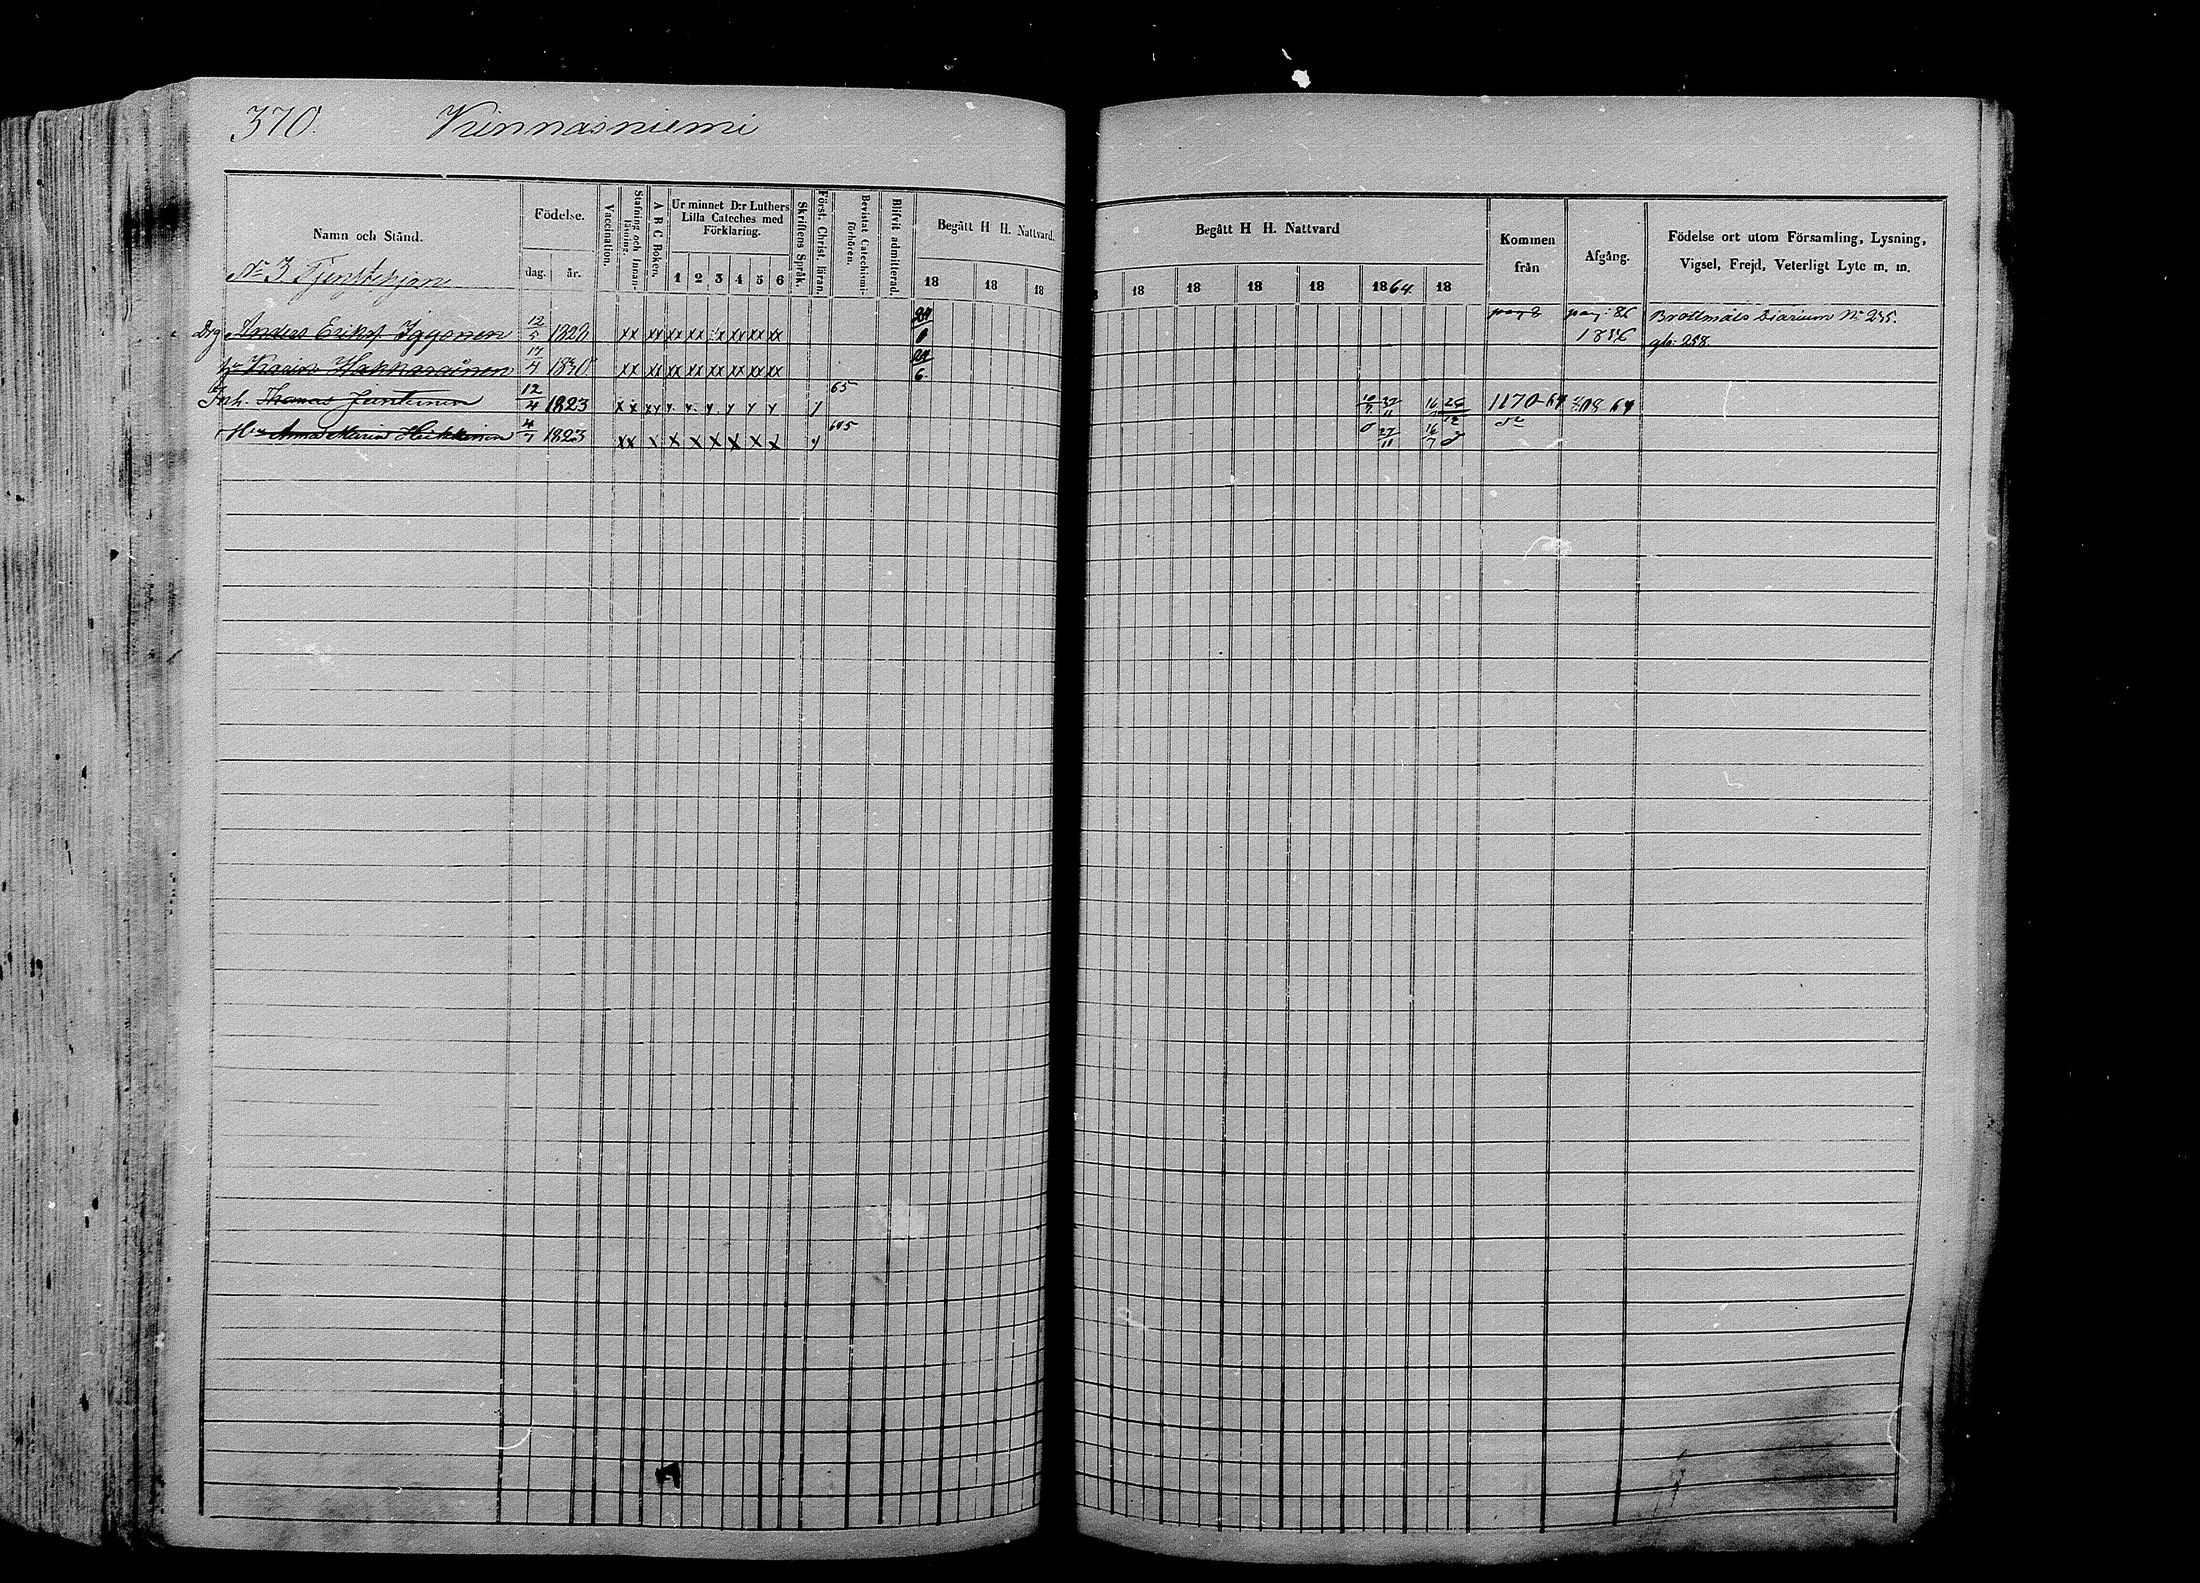 370. Kinnasniemi
Namn och Stånd.
Födelse.
dag. år.
Vaccination.
Stafning och Innanläsning.
A B C Boken.
Ur minnet D:r Luthers
Lilla Cateches med
Förklaring.
1 2 3 4 5 6
Skriftens Språk.
Först. Christ. läran.
Bevistat Catechismiförhören.
Blifvit admitterad.
Begått H H. Nattvard.
18 18 18
Begått H H. Nattvard
18 18 18 18 1864 18
Kommen
från
Afgång.
Födelse ort utom Församling, Lysning,
Vigsel, Frejd, Veterligt Lyte m. m.
No 3.
Drg Anders Eriks Iggonen 12/5 1828 xx xx xx xx xx xx xx xx pag: 86 Brottmåls Diarium No 235.
1856
Karin Hakkarainen 17/4 1830 xx xx xx xx xx xx xx xx
Inh. Thomas Juntunen 12/4 1823 65 1170-64
Hu Anna Maria Heikkinen 4/7 1823 x x x x x x x 27/11 16/7